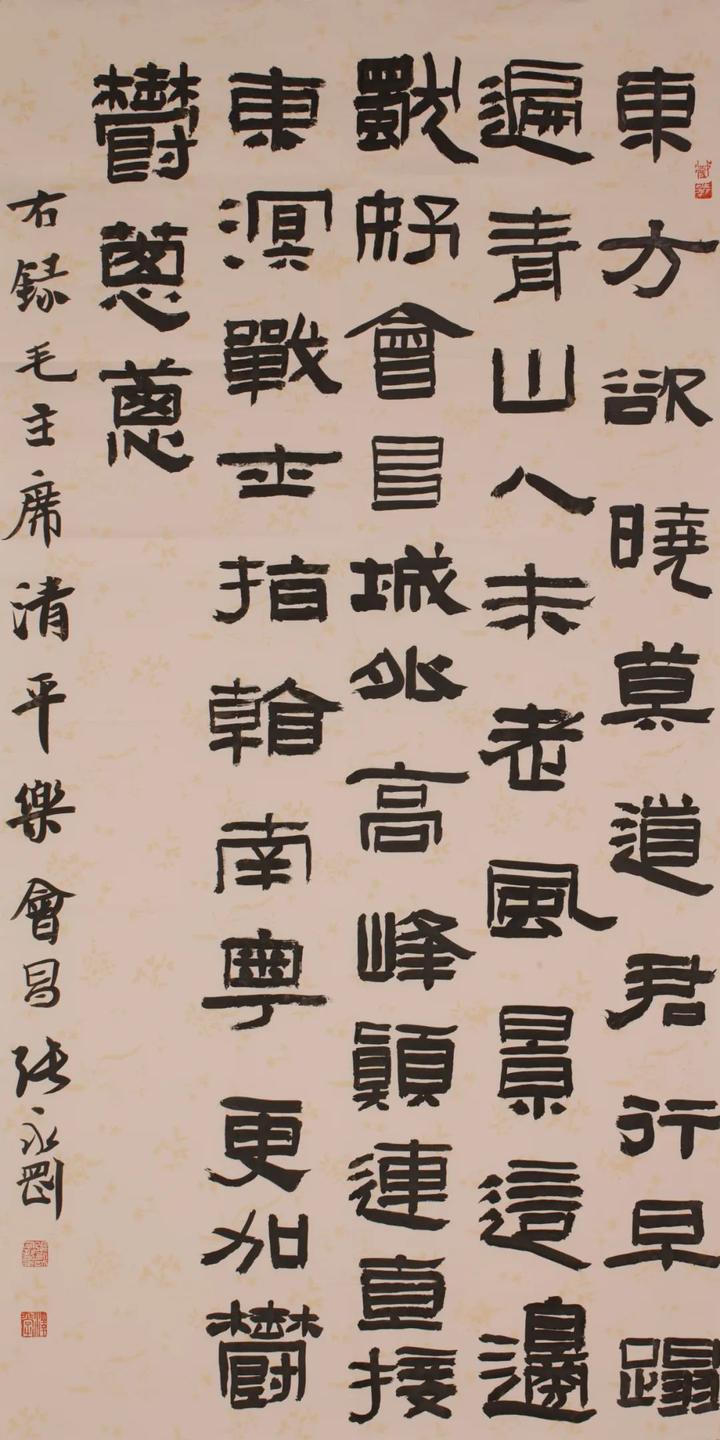 東方欲曉莫道君行早蹋
遍青山人未老風景這邊
獨好會昌城外高峰顛連直接
東溟戰士指看南粵更加鬱
鬱蔥蔥
右錄毛主席清平樂會昌張永剛